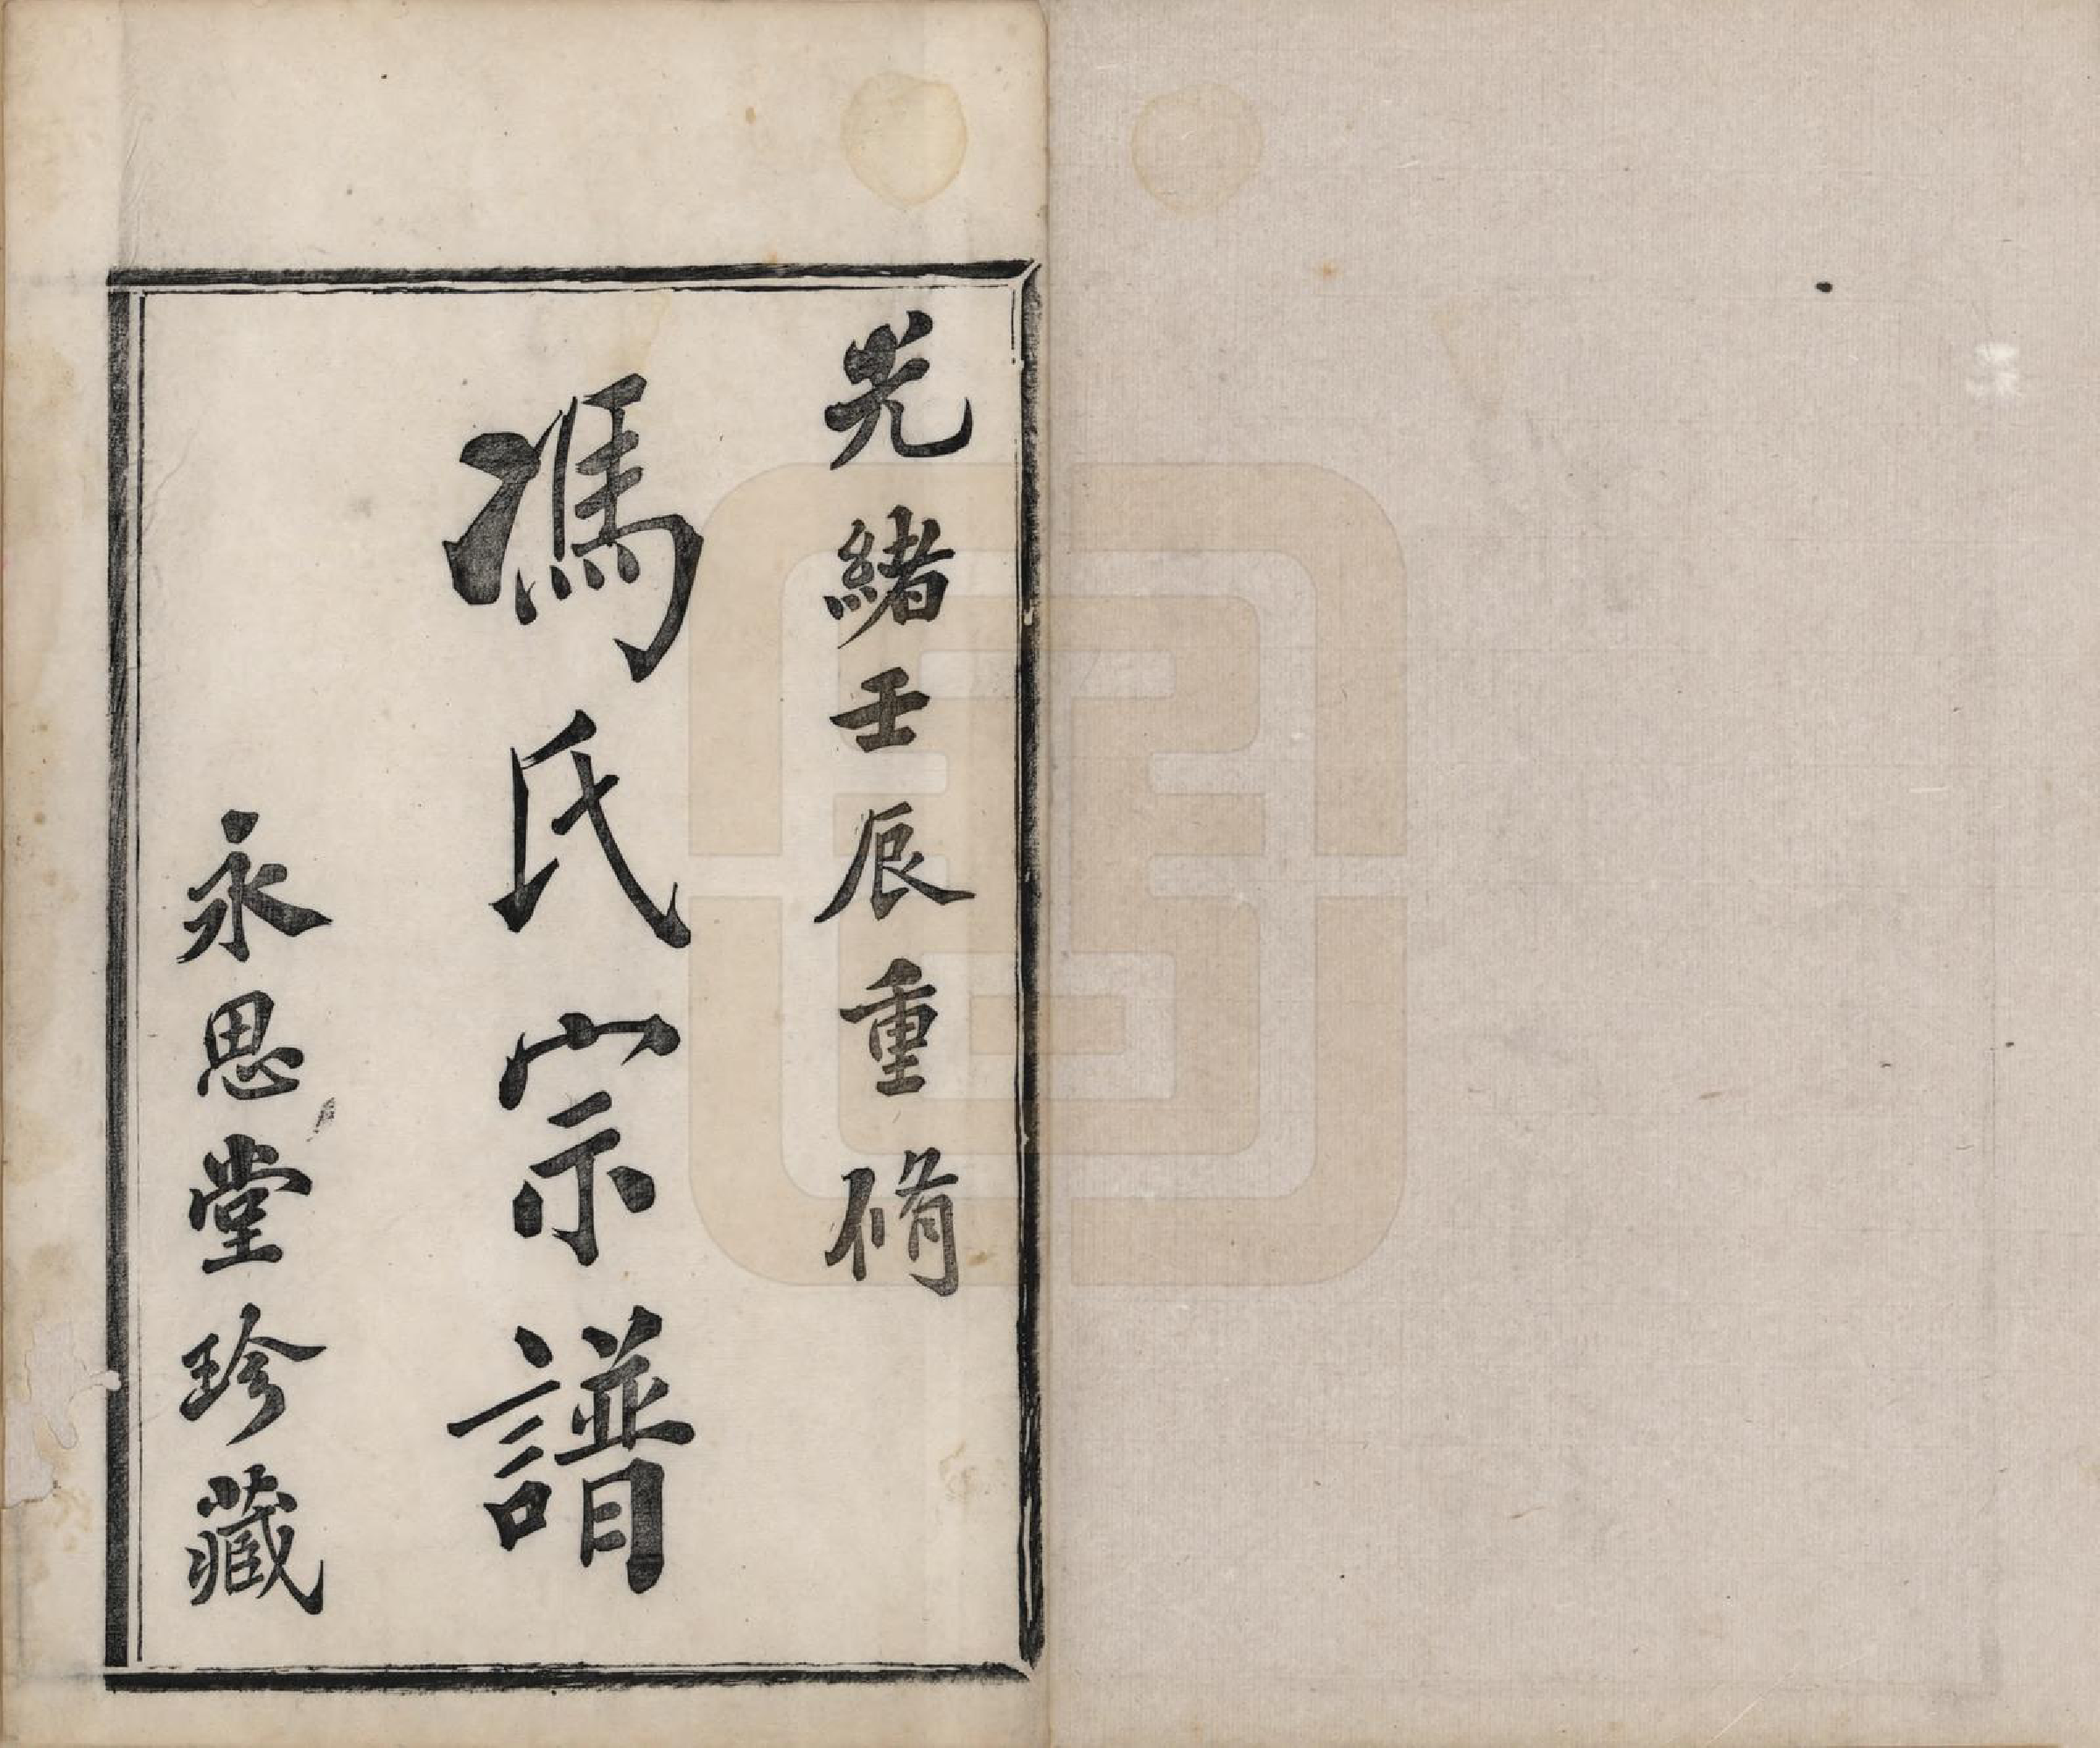 光緒壬辰重脩
馮氏宗譜
永思堂珍藏